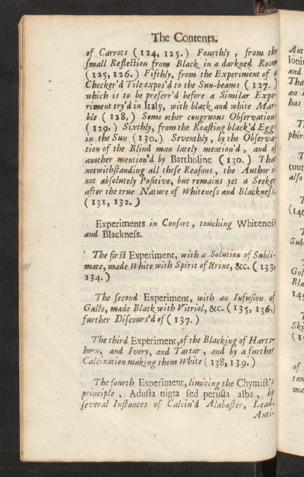 The Contents.
of Carrots (124, 125.) Fourthly, from the
ſmall Reflection from Black in a darkned Room
(125, 126.) Fifthly, from the Experiment of a
Checker'd Tile expos'd to the Sun-beams (127.)
which is to be preferr'd before a Similar Expe-
riment try'd in Italy, with black and white Mar-
ble (128.) Some other congruous Obſervations
(129.) Sixthly, from the Roaſting black'd Eggs
in the Sun (130.) Seventhly, by the Obſerva-
tion of the Blind man lately mention'd, and of
another mention'd by Bartholine (130.) That
notwithſtanding all theſe Reaſons, the Author is
not abſolutely Poſitive, but remains yet a Seeker
after the true Nature of Whiteneſs and Blackneſs.
(131, 132.)
Experiments in Conſort, touching Whiteneſs
and Blackneſs.
The firſt Experiment, with a Solution of Subli-
mate, made White with Spirit of Urine, &c. (133,
134.)
The ſecond Experiment, with an Infuſion of
Galls, made Black with Vitriol, &c. (135, 136.)
further Diſcours'd of (137.)
The third Experiment, of the Blacking of Harts-
horn, and Ivory, and Tartar, and by a further
Calcination making them White (138, 139.)
The fourth Experiment, limiting the Chymiſt's
principle, Aduſta nigra ſed peruſta alba, by
ſeveral Inſtances of Calcin'd Alabaſter, Lead,
Anti-